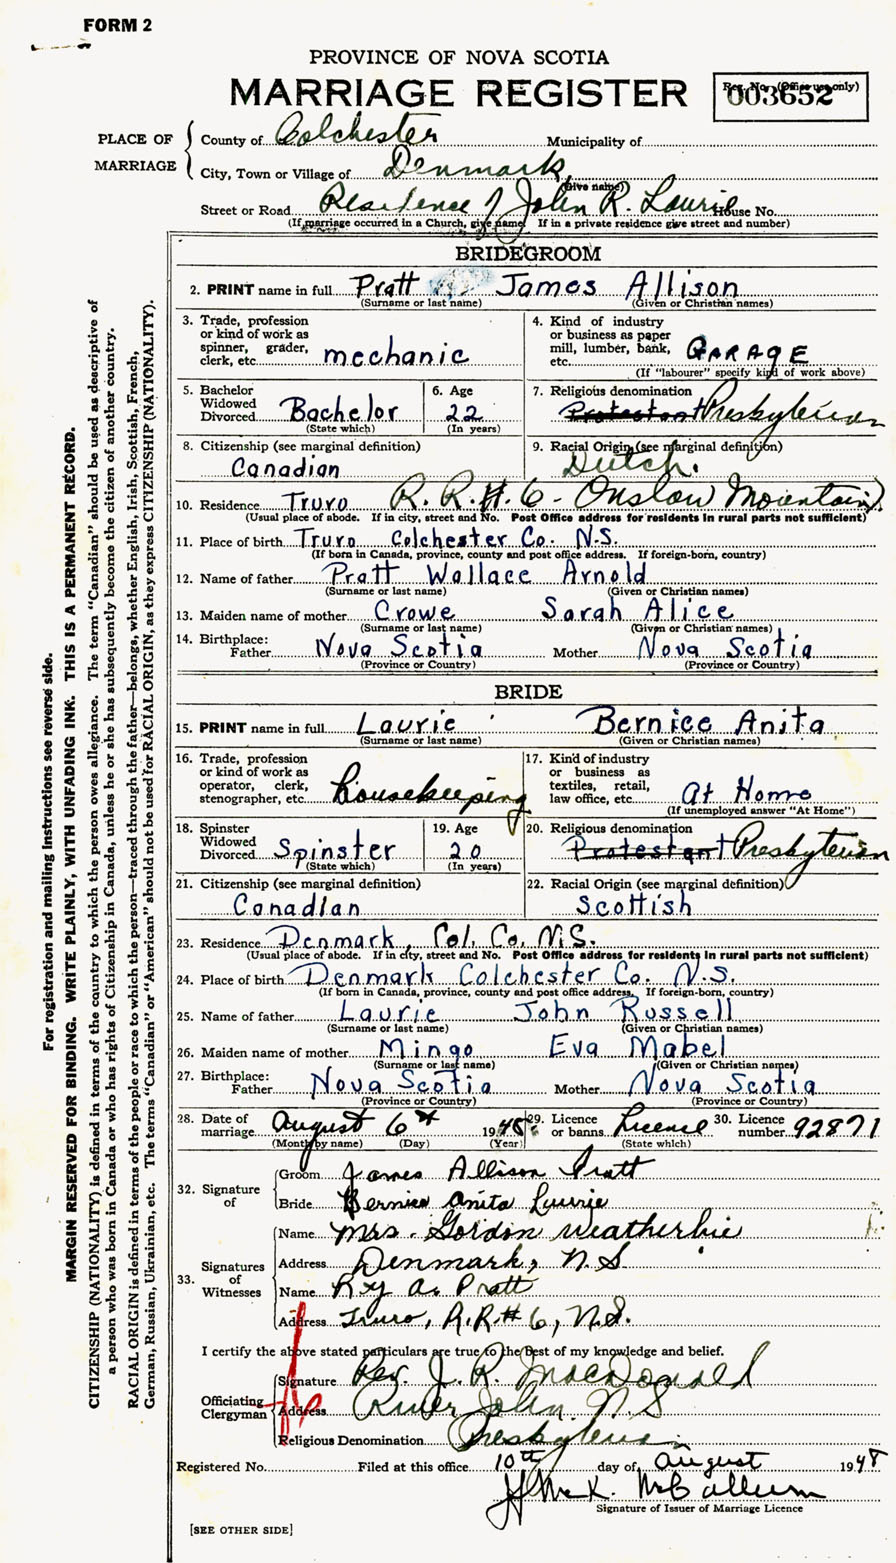 FORM 2
PROVINCE OF NOVA SCOTIA
MARRIAGE REGISTER
Reg. No. (Office use only)
003652
PLACE OF MARRIAGE
County of Colchester Municipality of
City, Town or Village of Denmark,
(Give name)
Street or Road Residence of John R. Laurie House No.
(If marriage occurred in a Church, give name) If in a private residence give street and number)
BRIDEGROOM
2. PRINT name in full Pratt James Allison
(Surname or last name) (Given or Christian names)
3. Trade, profession or kind of work as spinner, grader, clerk, etc. mechanic
4. Kind of industry or business as paper mill, lumber, bank, etc. GARAGE
(If "labourer" specify kind of work above)
5. Bachelor Widowed Divorced Bachelor
(State which)
6. Age 22
(In years)
7. Religious denomination Protestant Presbyterian
8. Citizenship (see marginal definition)
Canadian
9. Racial Origin (see marginal definition)
Dutch.
10. Residence Truro R. R. #. 6 - Onslow Mountain)
(Usual place of abode. If in city, street and No. Post Office address for residents in rural parts not sufficient)
11. Place of birth Truro Colchester Co. N.S.
(If born in Canada, province, county and post office address. If foreign-born, country)
12. Name of father Pratt Wallace Arnold
(Surname or last name) (Given or Christian names)
13. Maiden name of mother Crowe Sarah Alice
(Surname or last name) (Given or Christian names)
14. Birthplace:
Father Nova Scotia Mother Nova Scotia
(Province or Country) (Province or Country)
BRIDE
15. PRINT name in full Laurie Bernice Anita
(Surname or last name) (Given or Christian names)
16. Trade, profession or kind of work as operator, clerk, stenographer, etc. housekeeping
17. Kind of industry or business as textiles, retail, law office, etc. At Home
(If unemployed answer "At Home")
18. Spinster Widowed Divorced Spinster
(State which)
19. Age 20
(In years)
20. Religious denomination
Protestant Presbyterian
21. Citizenship (see marginal definition)
Canadian
22. Racial Origin (see marginal definition)
Scottish
23. Residence Denmark, Col. Co. N.S.
(Usual place of abode. If in city, street and No. Post Office address for residents in rural parts not sufficient)
24. Place of birth Denmark Colchester Co. N.S.
(If born in Canada, province, county and post office address. If foreign-born, country)
25. Name of father Laurie John Russell
(Surname or last name) (Given or Christian names)
26. Maiden name of mother Mingo Eva Mabel
(Surname or last name) (Given or Christian names)
27. Birthplace:
Father Nova Scotia Mother Nova Scotia
(Province or Country) (Province or Country)
28. Date of marriage August 6th 1948
(Month by name) (Day) (Year)
29. Licence or banns Licence
(State which)
30. Licence number 92871
32. Signature of
Groom James Allison Pratt
Bride Bernice Anita Laurie
33. Signatures of Witnesses
Name Mrs. Gordon Weatherbie
Address Denmark, N.S
Name Roy A. Pratt
Address Truro, R.R.# 6, N.S.
I certify the above stated particulars are true to the best of my knowledge and belief.
Officiating Clergyman
Signature Rev. J. R. MacDonald
Address River John N.S
Religious Denomination Presbyterian
Registered No. Filed at this office 10th day of August 1948
H McK. McCallum
Signature of Issuer of Marriage Licence
[SEE OTHER SIDE]
For registration and mailing instructions see reverse side.
MARGIN RESERVED FOR BINDING. WRITE PLAINLY, WITH UNFADING INK. THIS IS A PERMANENT RECORD.
CITIZENSHIP (NATIONALITY) is defined in terms of the country to which the person owes allegiance. The term "Canadian" should be used as descriptive of
a person who was born in Canada or who has rights of Citizenship in Canada, unless he or she has subsequently become the citizen of another country.
RACIAL ORIGIN is defined in terms of the people or race to which the person—traced through the father—belongs, whether English, Irish, Scottish, French,
German, Russian, Ukrainian, etc. The terms "Canadian" or "American" should not be used for RACIAL ORIGIN, as they express CITIZENSHIP (NATIONALITY).